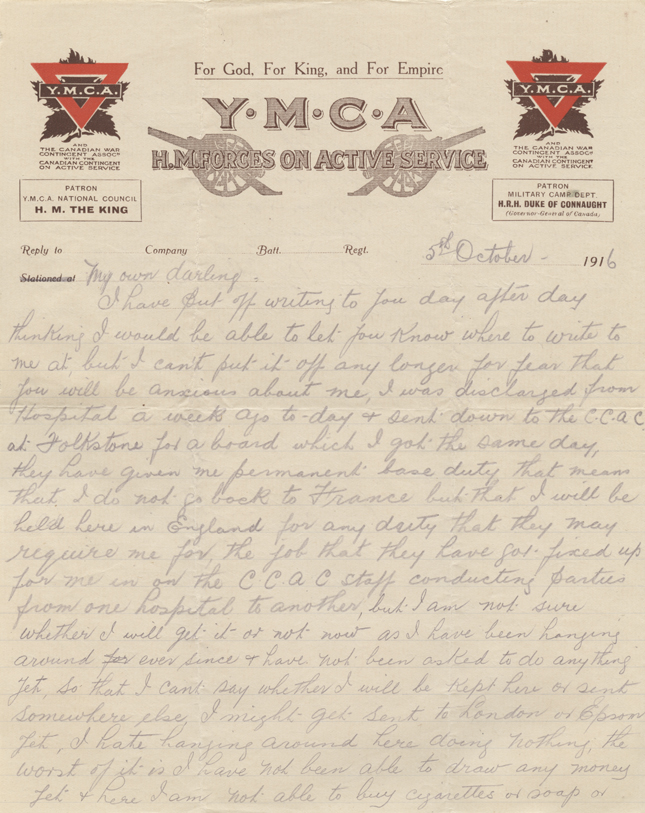 For God, For King, and For Empire
Y·M·C·A
H.M. FORCES ON ACTIVE SERVICE
Y.M.C.A.
AND
THE CANADIAN WAR
CONTINGENT ASSOCN
WITH THE
CANADIAN CONTINGENT
ON ACTIVE SERVICE
PATRON
Y.M.C.A. NATIONAL COUNCIL
H. M. THE KING
Y.M.C.A.
AND
THE CANADIAN WAR
CONTINGENT ASSOCN
WITH THE
CANADIAN CONTINGENT
ON ACTIVE SERVICE
PATRON
MILITARY CAMP DEPT
H.R.H. DUKE OF CONNAUGHT
(Governor-General of Canada)
Reply to Company Batt. Regt. October - 1916
Stationed at My own darling -
I have put off writing to you day after day
thinking I would be able to let you know where to write to
me at, but I can't put it off any longer for fear that
you will be anxious about me, I was discharged from
Hospital a week ago to-day & sent down to the C.C.A.C
at Folkstone for a board which I got the same day,
they have given me permanent base duty that means
that I do not go back to France but that I will be
held here in England for any duty that they may
require me for, the job that they have got fixed up
for me in on the C.C.A.C staff conducting parties
from one hospital to another, but I am not sure
whether I will get it or not now as I have been hanging
around for ever since & have not been asked to do anything
yet, so that I cant say whether I will be kept here or sent
somewhere else, I might get sent to London or Epsom
yet, I hate hanging around here doing nothing, the
worst of it is I have not been able to draw any money
yet & here I am not able to buy cigarettes or soap or